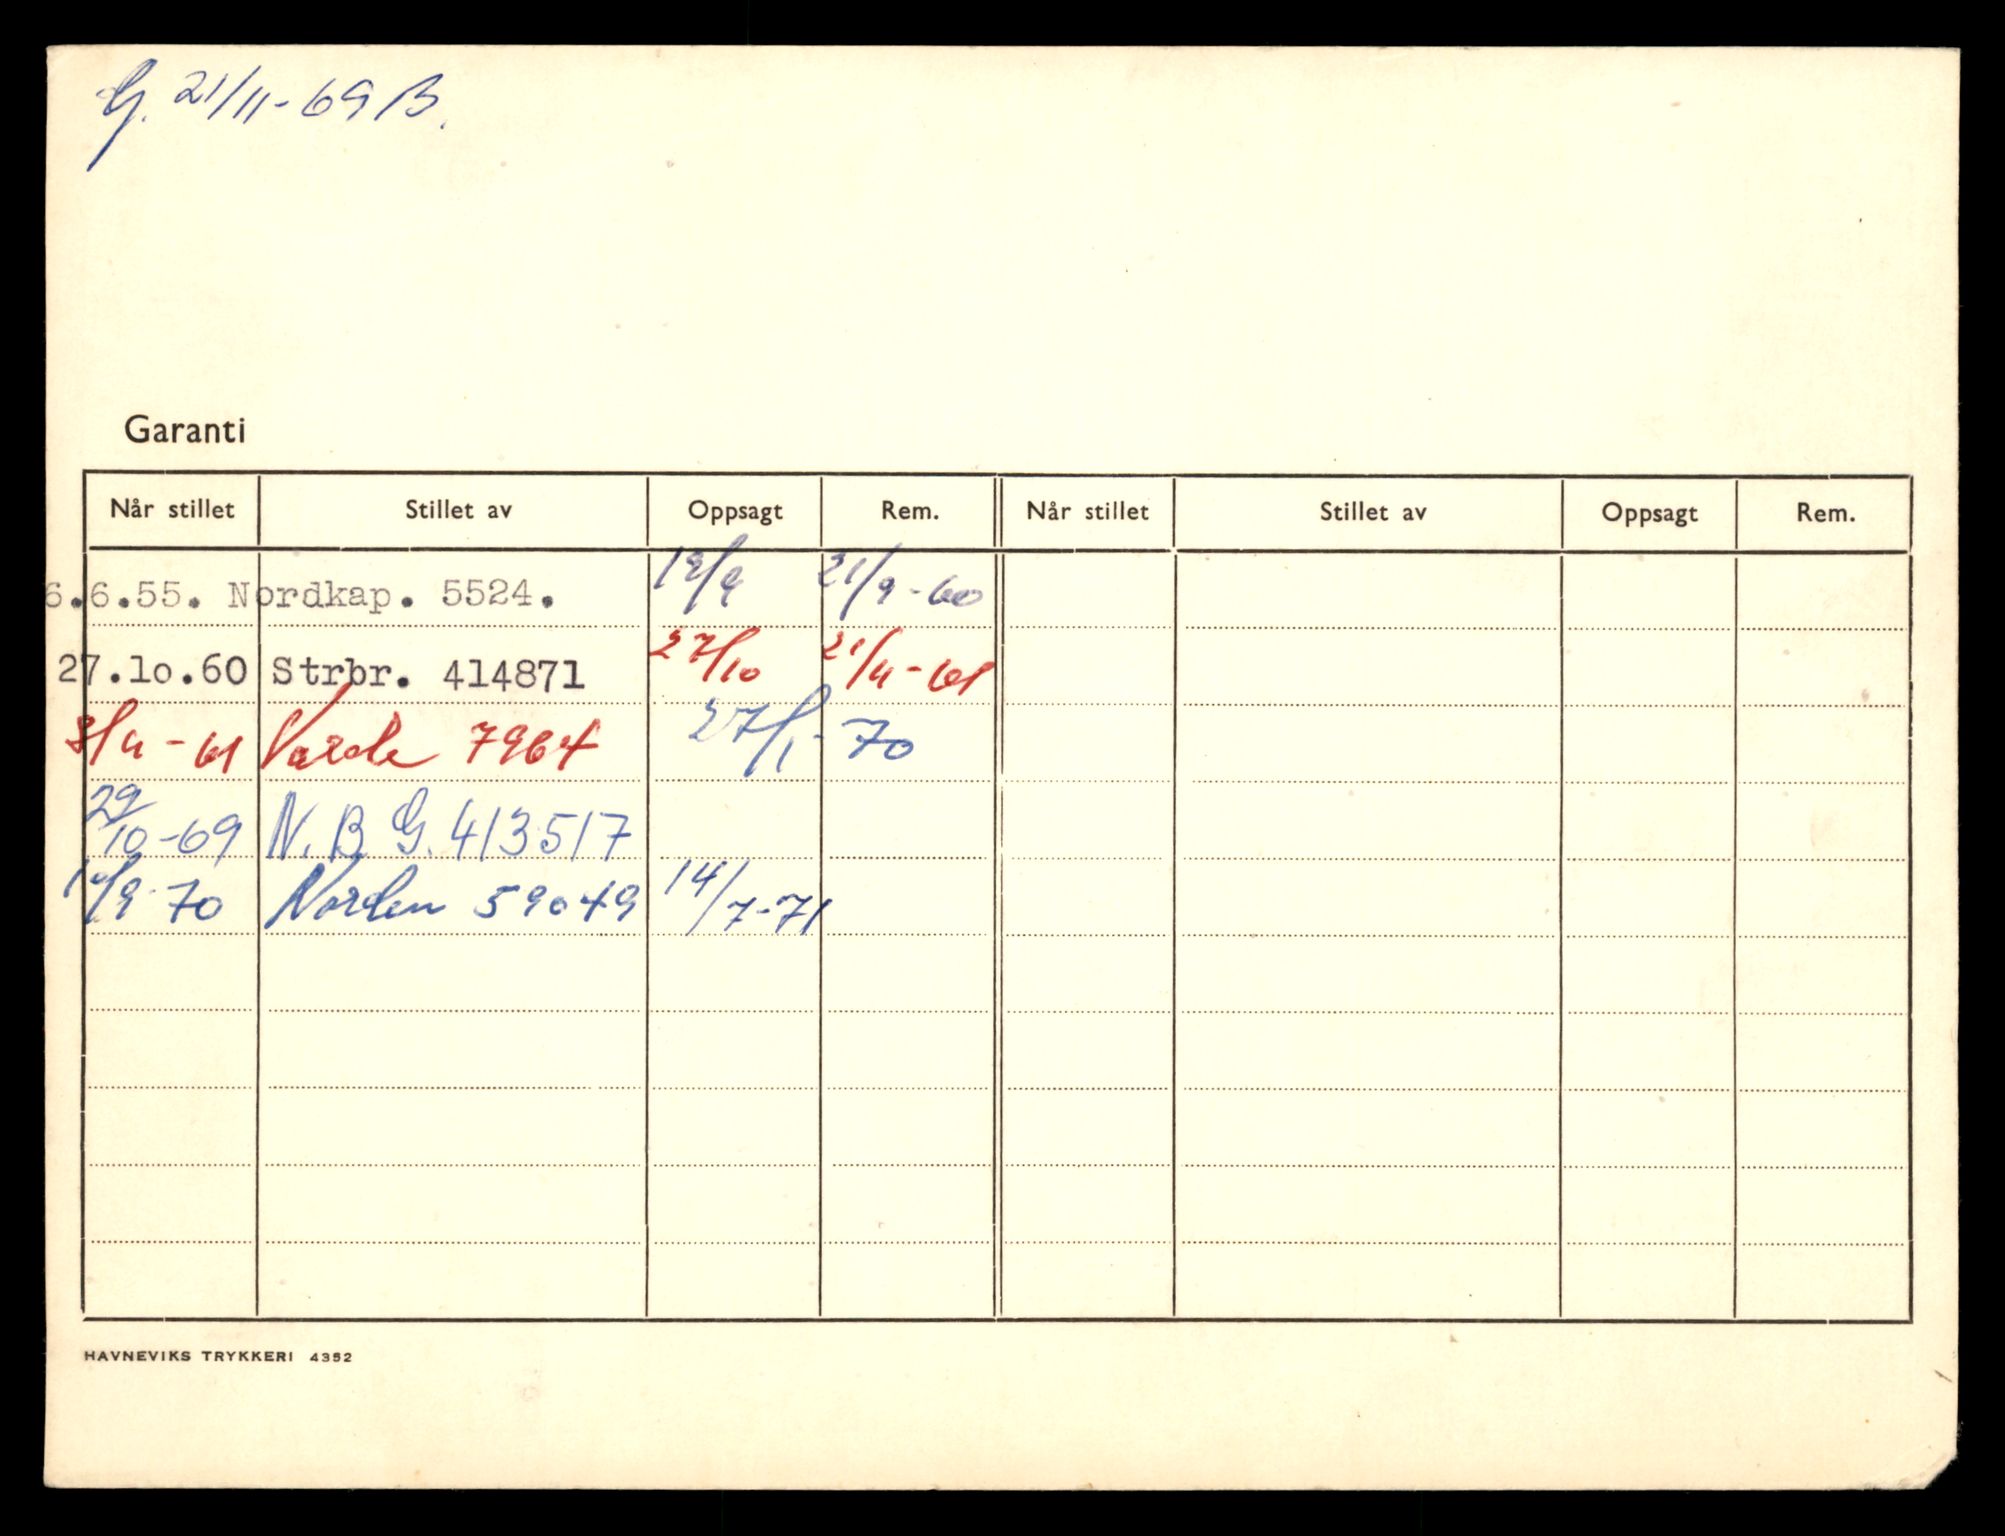 G. 21/11-69 B.
Garanti
Når stillet Stillet av Oppsagt Rem. Når stillet Stillet av Oppsagt Rem.
6.6.55. Nordkap. 5524. 19/9 21/9-60
27.10.60 Strbr. 414871 27/10 21/11-61
3/11-61 Varde 7964 27/1-70
29/10-69 N.B.G. 413517
/9-70 Norden 59049 14/7-71
HAVNEVIKS TRYKKERI 4352